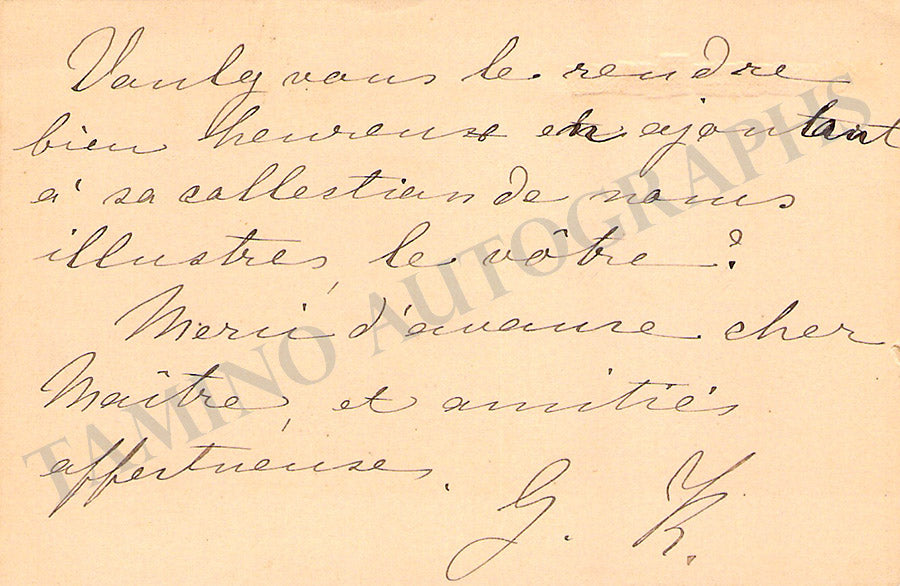 Voulez vous le rendre
bien heureux en ajoutant
à sa collection de noms
illustres, le vôtre?
Merci d'avance cher
Maître, et amitiés
affectueuses.
G. K.
TAMINO AUTOGRAPHS